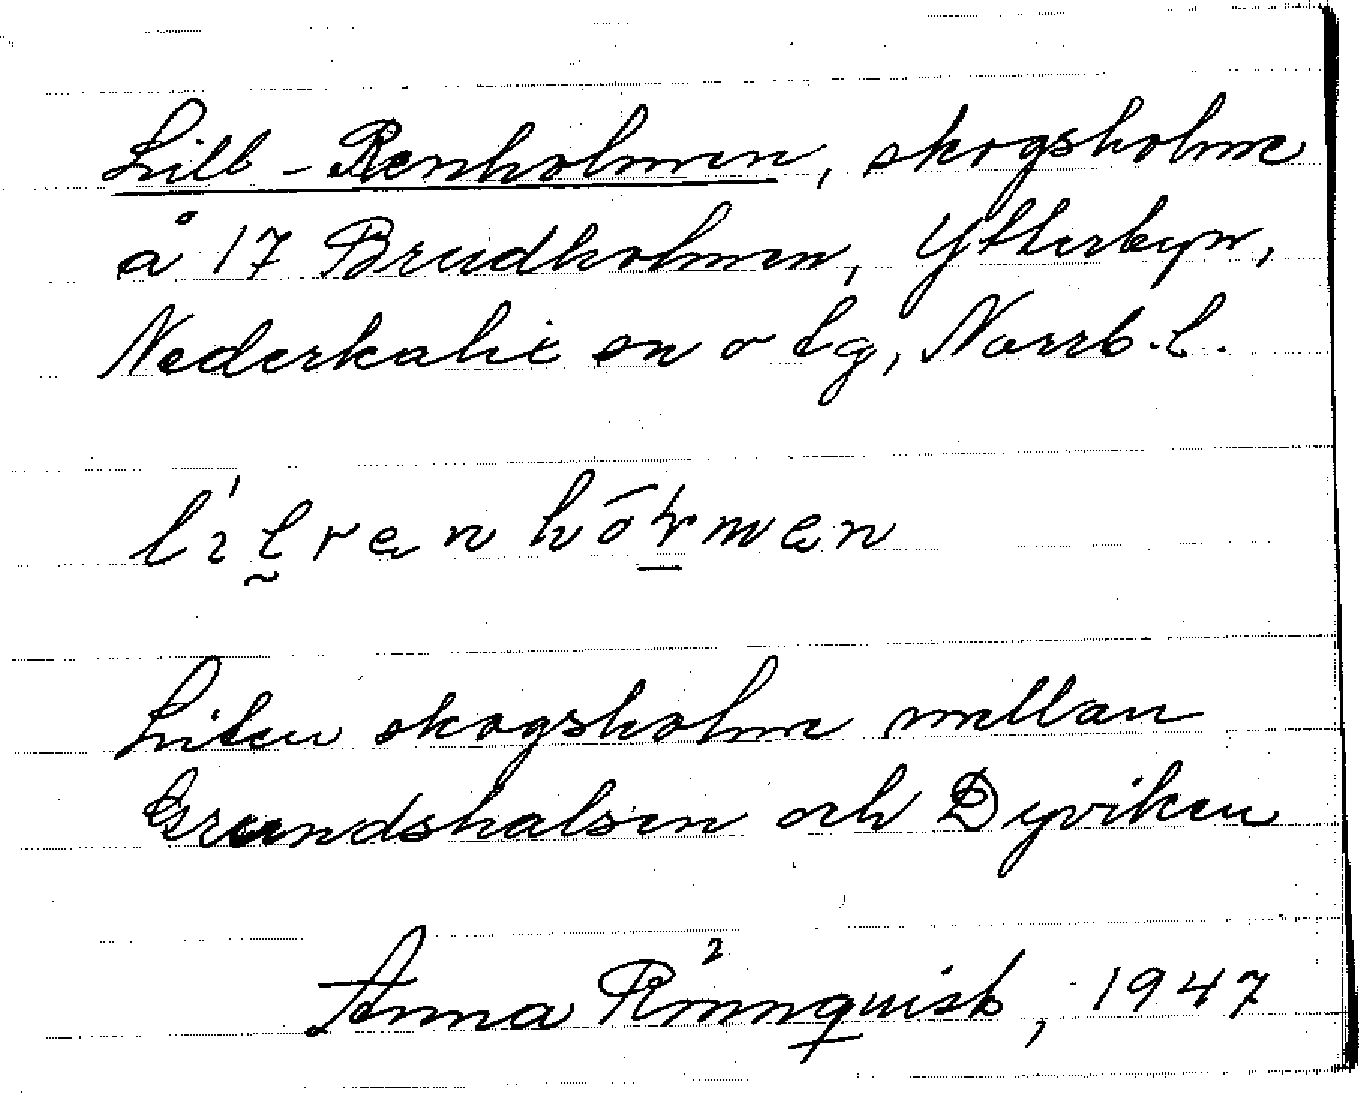 Lill-Renholmen, skogsholme
å 17 Brudholmen, Ytterbyn,
Nederkalix sn o tg, Norrb. l.
Liten skogsholme mellan
Grundshalsen och Dyviken
Anna Rönnquist, 1947